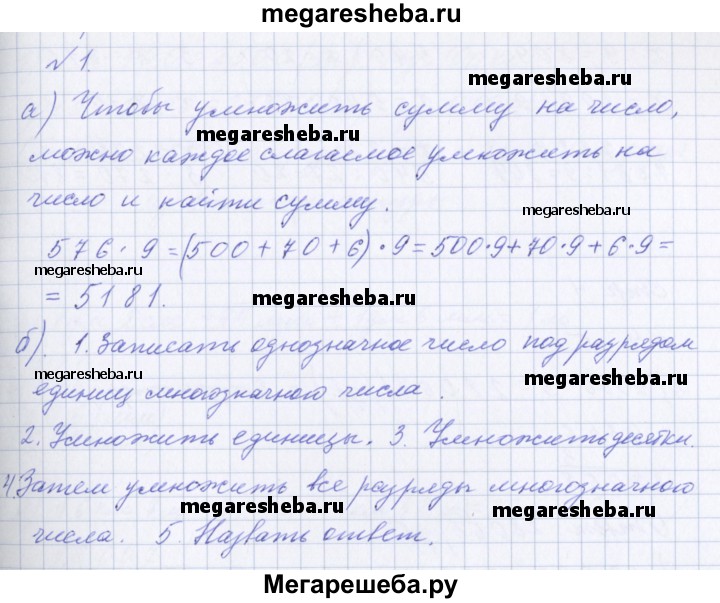 megaresheba.ru
№1.
megaresheba.ru
а) Чтобы умножить сумму на число,
megaresheba.ru
можно каждое слагаемое умножить на
число и найти сумму.
megaresheba.ru
576 · 9 = (500 + 70 + 6) · 9 = 500·9 + 70·9 + 6·9 =
megaresheba.ru
= 5181.
megaresheba.ru
б). 1. Записать однозначное число под разрядом
megaresheba.ru
megaresheba.ru
единиц многозначного числа.
2. Умножить единицы. 3. Умножить десятки.
4. Затем умножить все разряды многозначного
megaresheba.ru
megaresheba.ru
числа. 5. Назвать ответ.
Мегарешеба.ру